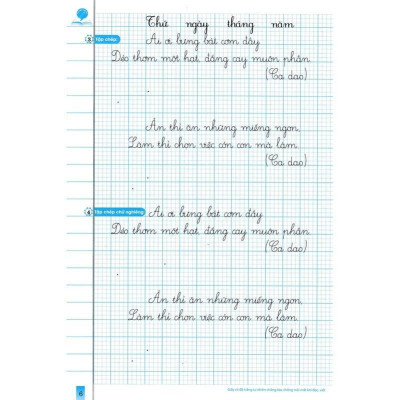 Thứ ngày tháng năm
3 Tập chép
Ai ơi bưng bát cơm đầy
Dẻo thơm một hạt, đắng cay muôn phần.
(Ca dao)
Ăn thì ăn những miếng ngon
Làm thì chọn việc cỏn con mà làm.
(Ca dao)
4 Tập chép chữ nghiêng
Ai ơi bưng bát cơm đầy
Dẻo thơm một hạt, đắng cay muôn phần.
(Ca dao)
Ăn thì ăn những miếng ngon
Làm thì chọn việc cỏn con mà làm.
(Ca dao)
6